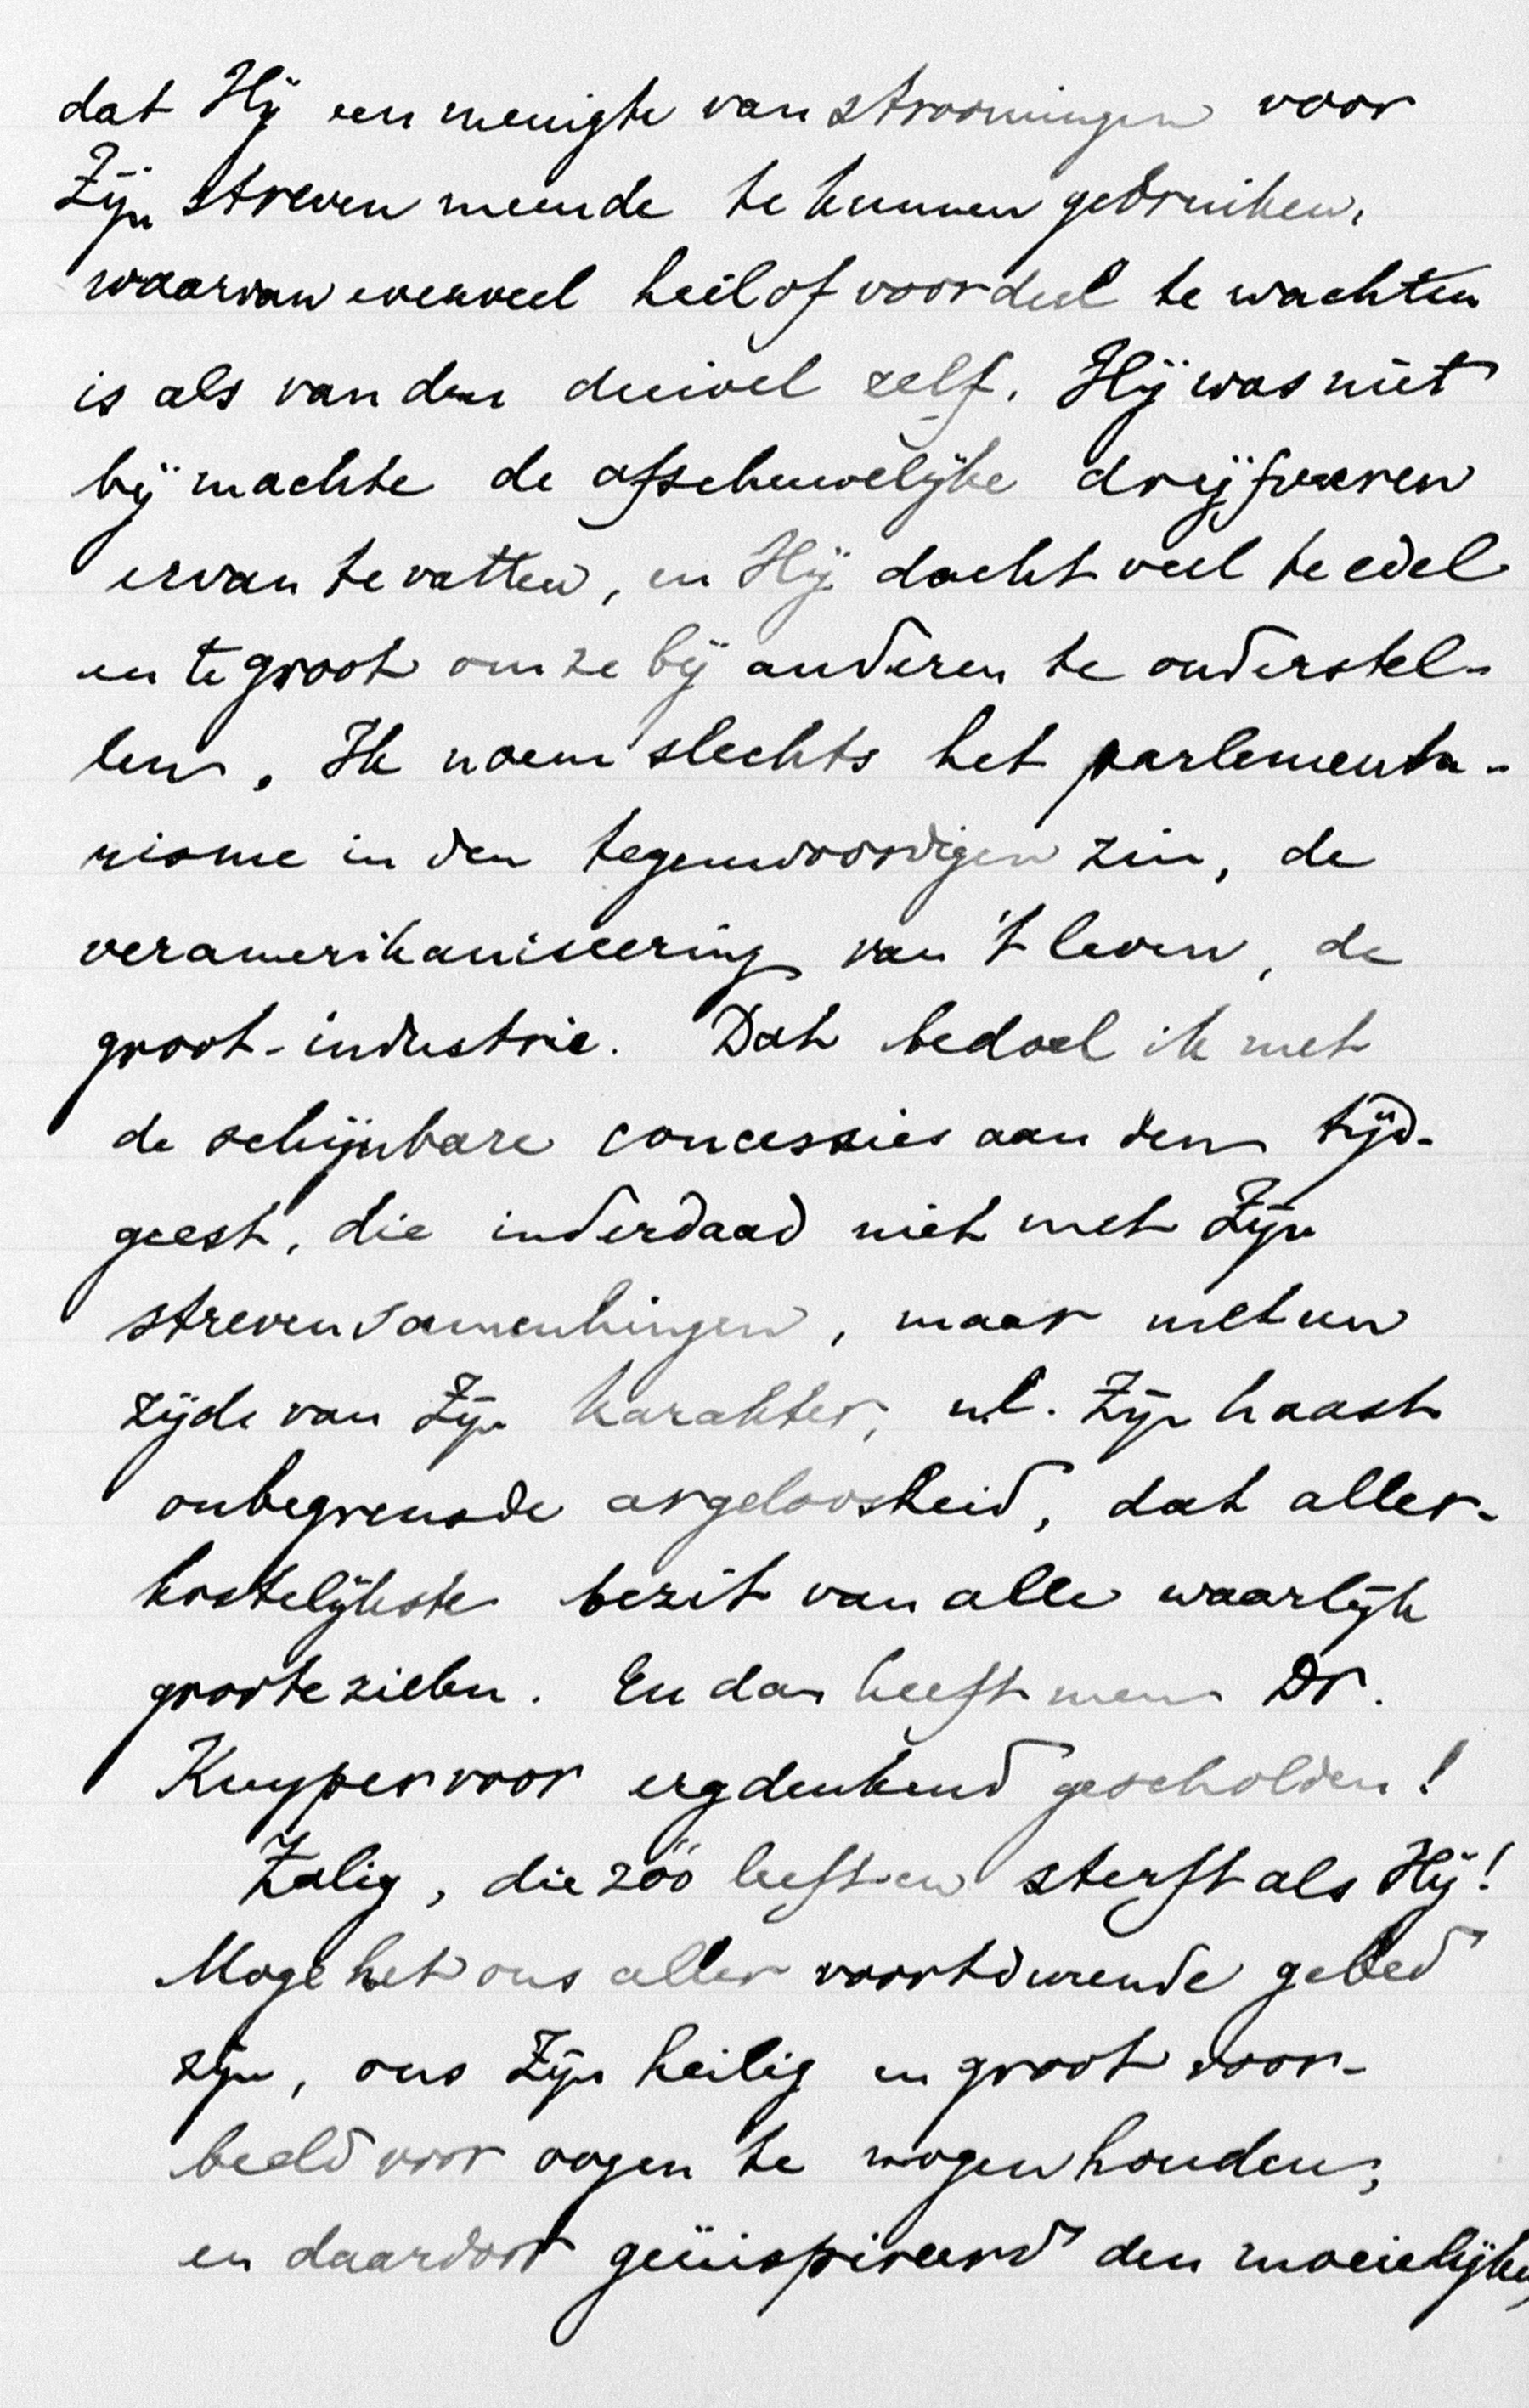 dat Hij een menigte van stroomingen voor
Zijn streven meende te kunnen gebruiken,
waarvan evenveel heil of voordeel te wachten
is als van den duivel zelf. Hij was niet
bij machte de afschuwelijke drijfveeren
ervan te vatten, en Hij dacht veel te edel
en te groot om ze bij anderen te onderstel-
len. Ik noem slechts het parlementa-
risme in den tegenwoordigen zin, de
veramerikaniseering van 't leven, de
groot-industrie. Dat bedoel ik met
de schijnbare concessies aan den tijd-
geest, die inderdaad niet met Zijn
streven samenhingen, maar met een
zijde van Zijn karakter, n.l. Zijn haast
onbegrensde argeloosheid, dat aller-
kostelijkste bezit van alle waarlijk
groote zielen. En dan heeft men Dr.
Kuyper voor ergdenkend gescholden!
Zalig, die zóó leeft en sterft als Hij!
Moge het ons aller voortdurende gebed
zijn, ons Zijn heilig en groot voor-
beeld voor oogen te mogen houden,
en daardoor geïnspireerd den moeielijken